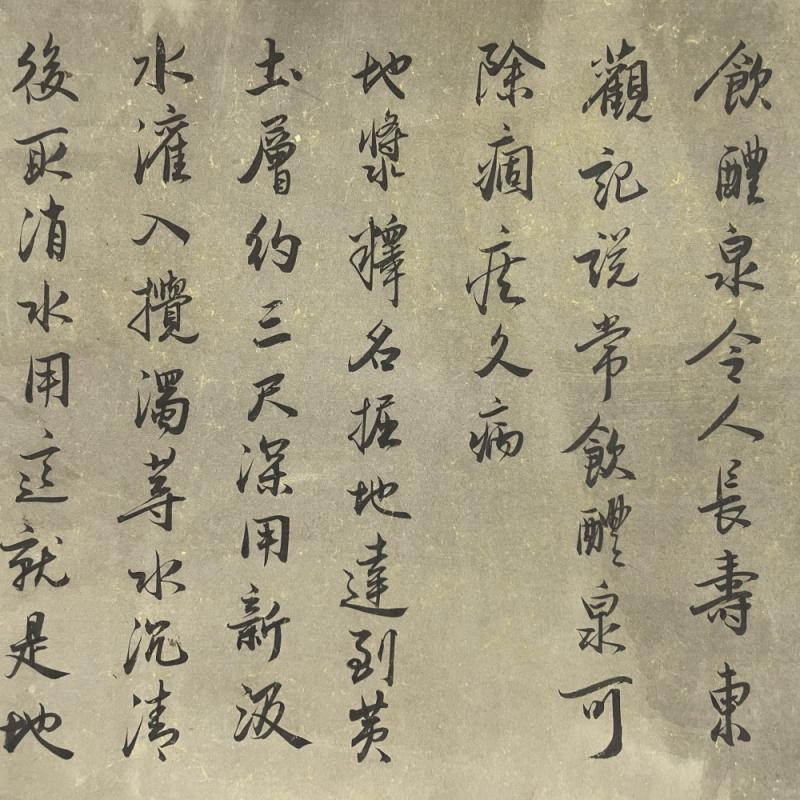 飲醴泉令人長壽東
觀記説常飲醴泉可
除痼疾久病
地漿釋名掘地達到黄
土層約三尺深用新汲
水灌入攪濁等水沉清
後取清水用這就是地